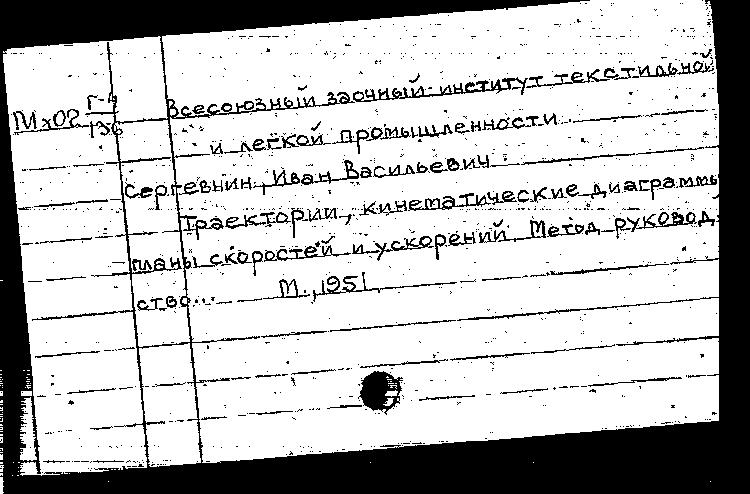 Всесоюзный заочный институт текстильной
Мх02 Г-4/136
и легкой промышленности
Сергевнин, Иван Васильевич
Траектории, кинематические диаграммы
планы скоростей и ускорений. Метод. руковод-
ство... М., 1951.